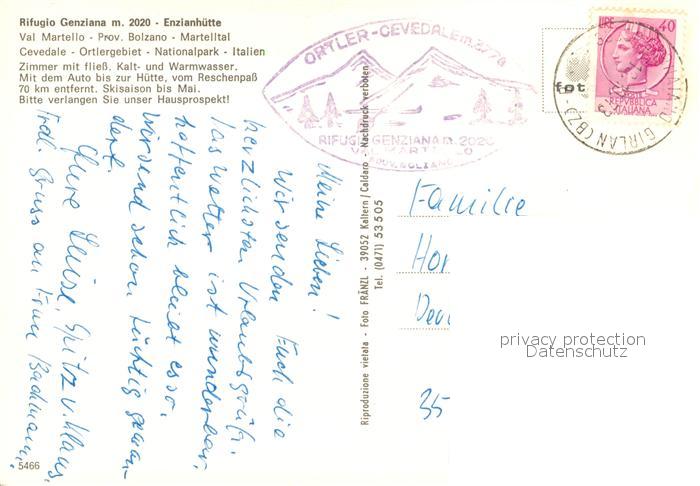 Rifugio Genziana m. 2020 - Enzianhütte
Val Martello - Prov. Bolzano - Martelltal
Cevedale - Ortlergebiet - Nationalpark - Italien
Zimmer mit fließ. Kalt- und Warmwasser.
Mit dem Auto bis zur Hütte, vom Reschenpaß
70 km entfernt. Skisaison bis Mai.
Bitte verlangen Sie unser Hausprospekt!
Meine Lieben!
Wir senden Euch die
herzlichsten Urlaubsgrüße.
Das Wetter ist wunderbar,
hoffentlich bleibt es so.
Wir sind schon tüchtig gewan-
dert.
Eure Luise, Spitz u. Klaus.
Frdl. Gruss an Frau Bachmann.
5466
Riproduzione vietata - Foto FRÄNZL - 39052 Kaltern/Caldaro - Nachdruck verboten
Tel. (0471) 53505
ORTLER-CEVEDALE m. 3778
RIFUGIO GENZIANA m. 2020
VAL MARTELLO
PROV. BOLZANO
fot
LIRE 40
POSTE
REPVBBLICA
ITALIANA
GIRLAN (BZ)
Familie
Hor
35
privacy protection
Datenschutz